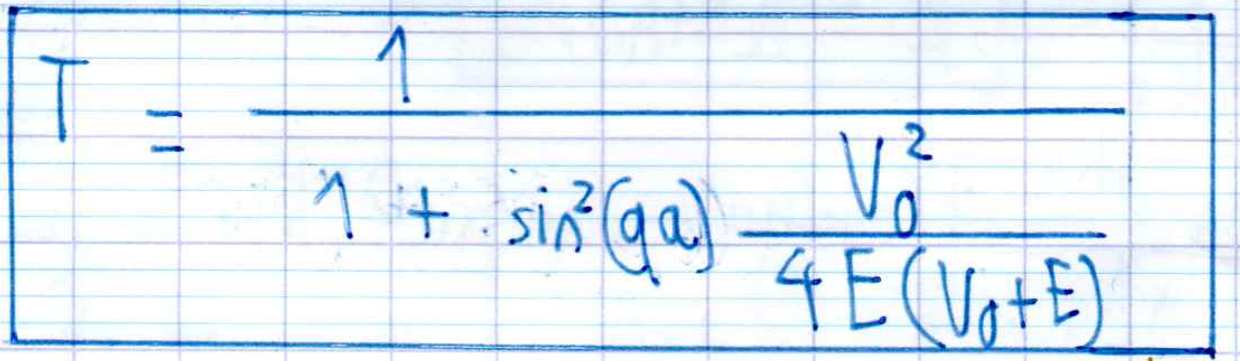 T = \frac{1}{1 + \sin^2(qa) \frac{V_0^2}{4E(V_0+E)}}